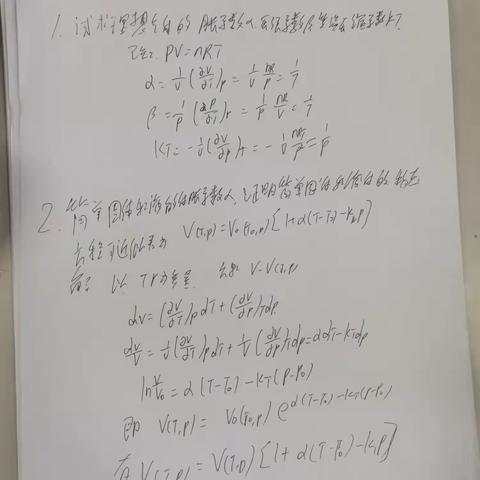 1. 试求理想气体的胀系数α,压强系数β,等温压缩系数κT.
已知: PV=nRT
α = 1/V (∂V/∂T)p = 1/V nR/P = 1/T
β = 1/P (∂P/∂T)v = 1/P nR/V = 1/T
κT = -1/V (∂V/∂p)T = -1/V nRT/P² = 1/P
2. 简单固体和液体的体胀系数α, 证明简单固体和液体的物态
方程可近似为 V(T,p) = V0(T0,p) [1+α(T-T0)-κTP]
解: 以 T P为变量 V=V(T,p
dV = (∂V/∂T)p dT + (∂V/∂p)T dp
dV/V = 1/V (∂V/∂T)p dT + 1/V (∂V/∂p)T dp = αdT-κTdp
ln V/V0 = α(T-T0) - κT(P-P0)
即 V(T,P) = V0(T0,p) e^α(T-T0)-κT(P-P0)
V(T,P) = V(T,0) [1 + α(T-T0)-κTP]